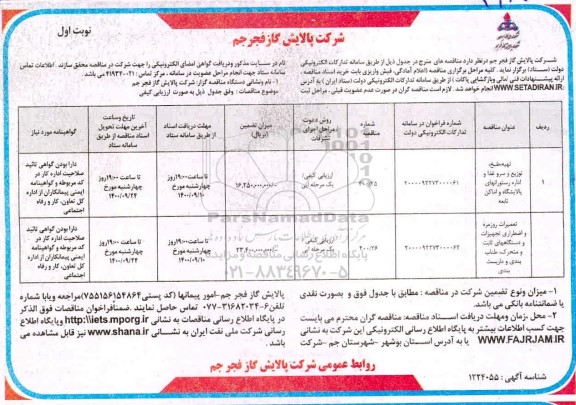 نوبت اول
شرکت پالایش گاز فجر جم
شرکت پالایش گاز فجر جم درنظر دارد مناقصه های مشرح در جدول ذیل از طریق سامانه تدارکات الکترونیکی
دولت (ستاد) برگزار نماید. کلیه مراحل برگزاری مناقصه (اعلام آمادگی، فیش واریزی بابت خرید اسناد مناقصه،
ارائه پیشنهادات فنی /مالی وبازگشایی پاکات) از طریق سامانه تدارکات الکترونیکی دولت (ستاد ایران) به آدرس
WWW.SETADIRAN.IR انجام خواهد شد. لازم است مناقصه گران در صورت عدم عضویت قبلی، مراحل ثبت
نام در سایت مذکور ودریافت گواهی امضای الکترونیکی را جهت شرکت در مناقصه محقق سازند. اطلاعات تماس
سامانه ستاد جهت انجام مراحل عضویت در سامانه، مرکز تماس: ۰۲۱-۴۱۹۳۴ می باشد.
۱- نام ونشانی دستگاه مناقصه گزار: شرکت پالایش گاز فجر جم
موضوع مناقصات: وفق جدول ذیل به صورت ارزیابی کیفی
ردیف
عنوان مناقصه
شماره فراخوان در سامانه تدارکات الکترونیکی دولت
شماره مناقصه
روش دعوت /مراحل اجرای تشریفات
میزان تضمین (ریال)
مهلت دریافت اسناد از طریق سامانه ستاد
تاریخ وساعت آخرین مهلت تحویل اسناد مناقصه از طریق سامانه ستاد
گواهینامه مورد نیاز
۱
تهیه،طبخ، توزیع و سرو غذا و اداره رستورانهای پالایشگاه و اماکن تابعه
۲۰۰۰۰۹۲۲۷۳۰۰۰۰۶۱
۴۰۰/۲۵
ارزیابی کیفی/ یک مرحله ای
۱۶,۲۵۰,۰۰۰,۰۰۰/-
تا ساعت ۱۹:۰۰ روز چهارشنبه مورخ ۱۴۰۰/۰۹/۱۰
تا ساعت ۱۹:۰۰ روز چهارشنبه مورخ ۱۴۰۰/۰۹/۲۴
دارا بودن گواهی تائید صلاحیت اداره کار در کد مربوطه و گواهینامه ایمنی پیمانکاران از اداره کل تعاون، کار و رفاه اجتماعی
تعمیرات روزمره و اضطراری تجهیزات و دستگاههای ثابت و متحرک، طناب بندی و داربست بندی
۲۰۰۰۰۹۲۲۷۳۰۰۰۰۶۲
۴۰۰/۲۶
ارزیابی کیفی/ یک مرحله ای
تا ساعت ۱۹:۰۰ روز چهارشنبه مورخ ۱۴۰۰/۰۹/۱۰
تا ساعت ۱۹:۰۰ روز چهارشنبه مورخ ۱۴۰۰/۰۹/۲۴
دارا بودن گواهی تائید صلاحیت اداره کار در کد مربوطه و گواهینامه ایمنی پیمانکاران از اداره کل تعاون، کار و رفاه اجتماعی
ParsNamadData
پایگاه اطلاع رسانی مناقصه و مزایده
۰۲۱-۸۸۳۴۹۶۷۰-۵
۱- میزان ونوع تضمین شرکت در مناقصه: مطابق با جدول فوق و بصورت نقدی
یا ضمانتنامه بانکی می باشد.
۲- محل ،زمان ومهلت دریافت اسناد مناقصه: مناقصه گران محترم می بایست
جهت کسب اطلاعات بیشتر به پایگاه اطلاع رسانی الکترونیکی این شرکت به نشانی
WWW.FAJRJAM.IR یا به آدرس استان بوشهر -شهرستان جم -شرکت
پالایش گاز فجر جم-امور پیمانها (کد پستی ۷۵۵۱۵۶۱۵۴۸۶۴)مراجعه ویابا شماره
تلفن ۶-۰۷۷-۳۱۶۸۲۰۳۴ تماس حاصل نمایند .ضمنافراخوان مناقصات فوق الذکر
در پایگاه اطلاع رسانی مناقصات به نشانی http://iets.mporg.ir وپایگاه اطلاع
رسانی شرکت ملی نفت ایران به نشانی www.shana.ir نیز قابل مشاهده می
باشد .
روابط عمومی شرکت پالایش گاز فجر جم
شناسه آگهی: ۱۲۲۴۰۵۵